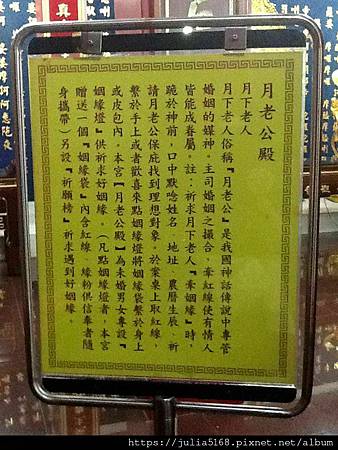 月老公殿
月下老人
月下老人俗稱『月老公』是我國神話傳說中專管
婚姻的媒神。主司婚姻之撮合，牽紅線使有情人
皆能成眷屬。註：祈求月下老人『牽姻緣』時，
跪於神前，口中默唸姓名、地址、農曆生辰、祈
請月老公保庇找到理想對象。於案桌上取紅線，
繫於手上或者歡喜來點姻緣燈將姻緣袋繫於身上
或皮包內。本宮【月老公殿】為未婚男女專設『
姻緣燈』供祈求好姻緣。（凡點姻緣燈者，本宮
贈送一個『姻緣袋』內含紅線、緣粉供信奉者隨
身攜帶）另設『祈願榜』祈求遇到好姻緣。
https://julia5168.pixnet.net/album